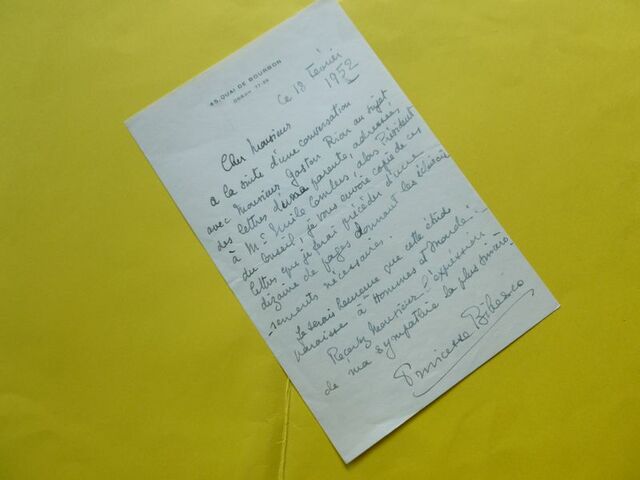 45, QUAI DE BOURBON
ODÉON 77-29
Ce 18 Février
1952
Cher Monsieur
à la suite d'une conversation
avec Monsieur Gaston Riou au sujet
des lettres d'une parente, adressées
à Mr Emile Combes, alors Président
du Conseil, je vous envoie copie de ces
lettres que je ferai précéder d'une
dizaine de pages donnant les éclaircis
-sements nécessaires.
Je serais heureuse que cette étude
paraisse à Hommes et Mondes.
Recevez Monsieur l'expression
de ma sympathie la plus sincère.
Princesse Bibesco